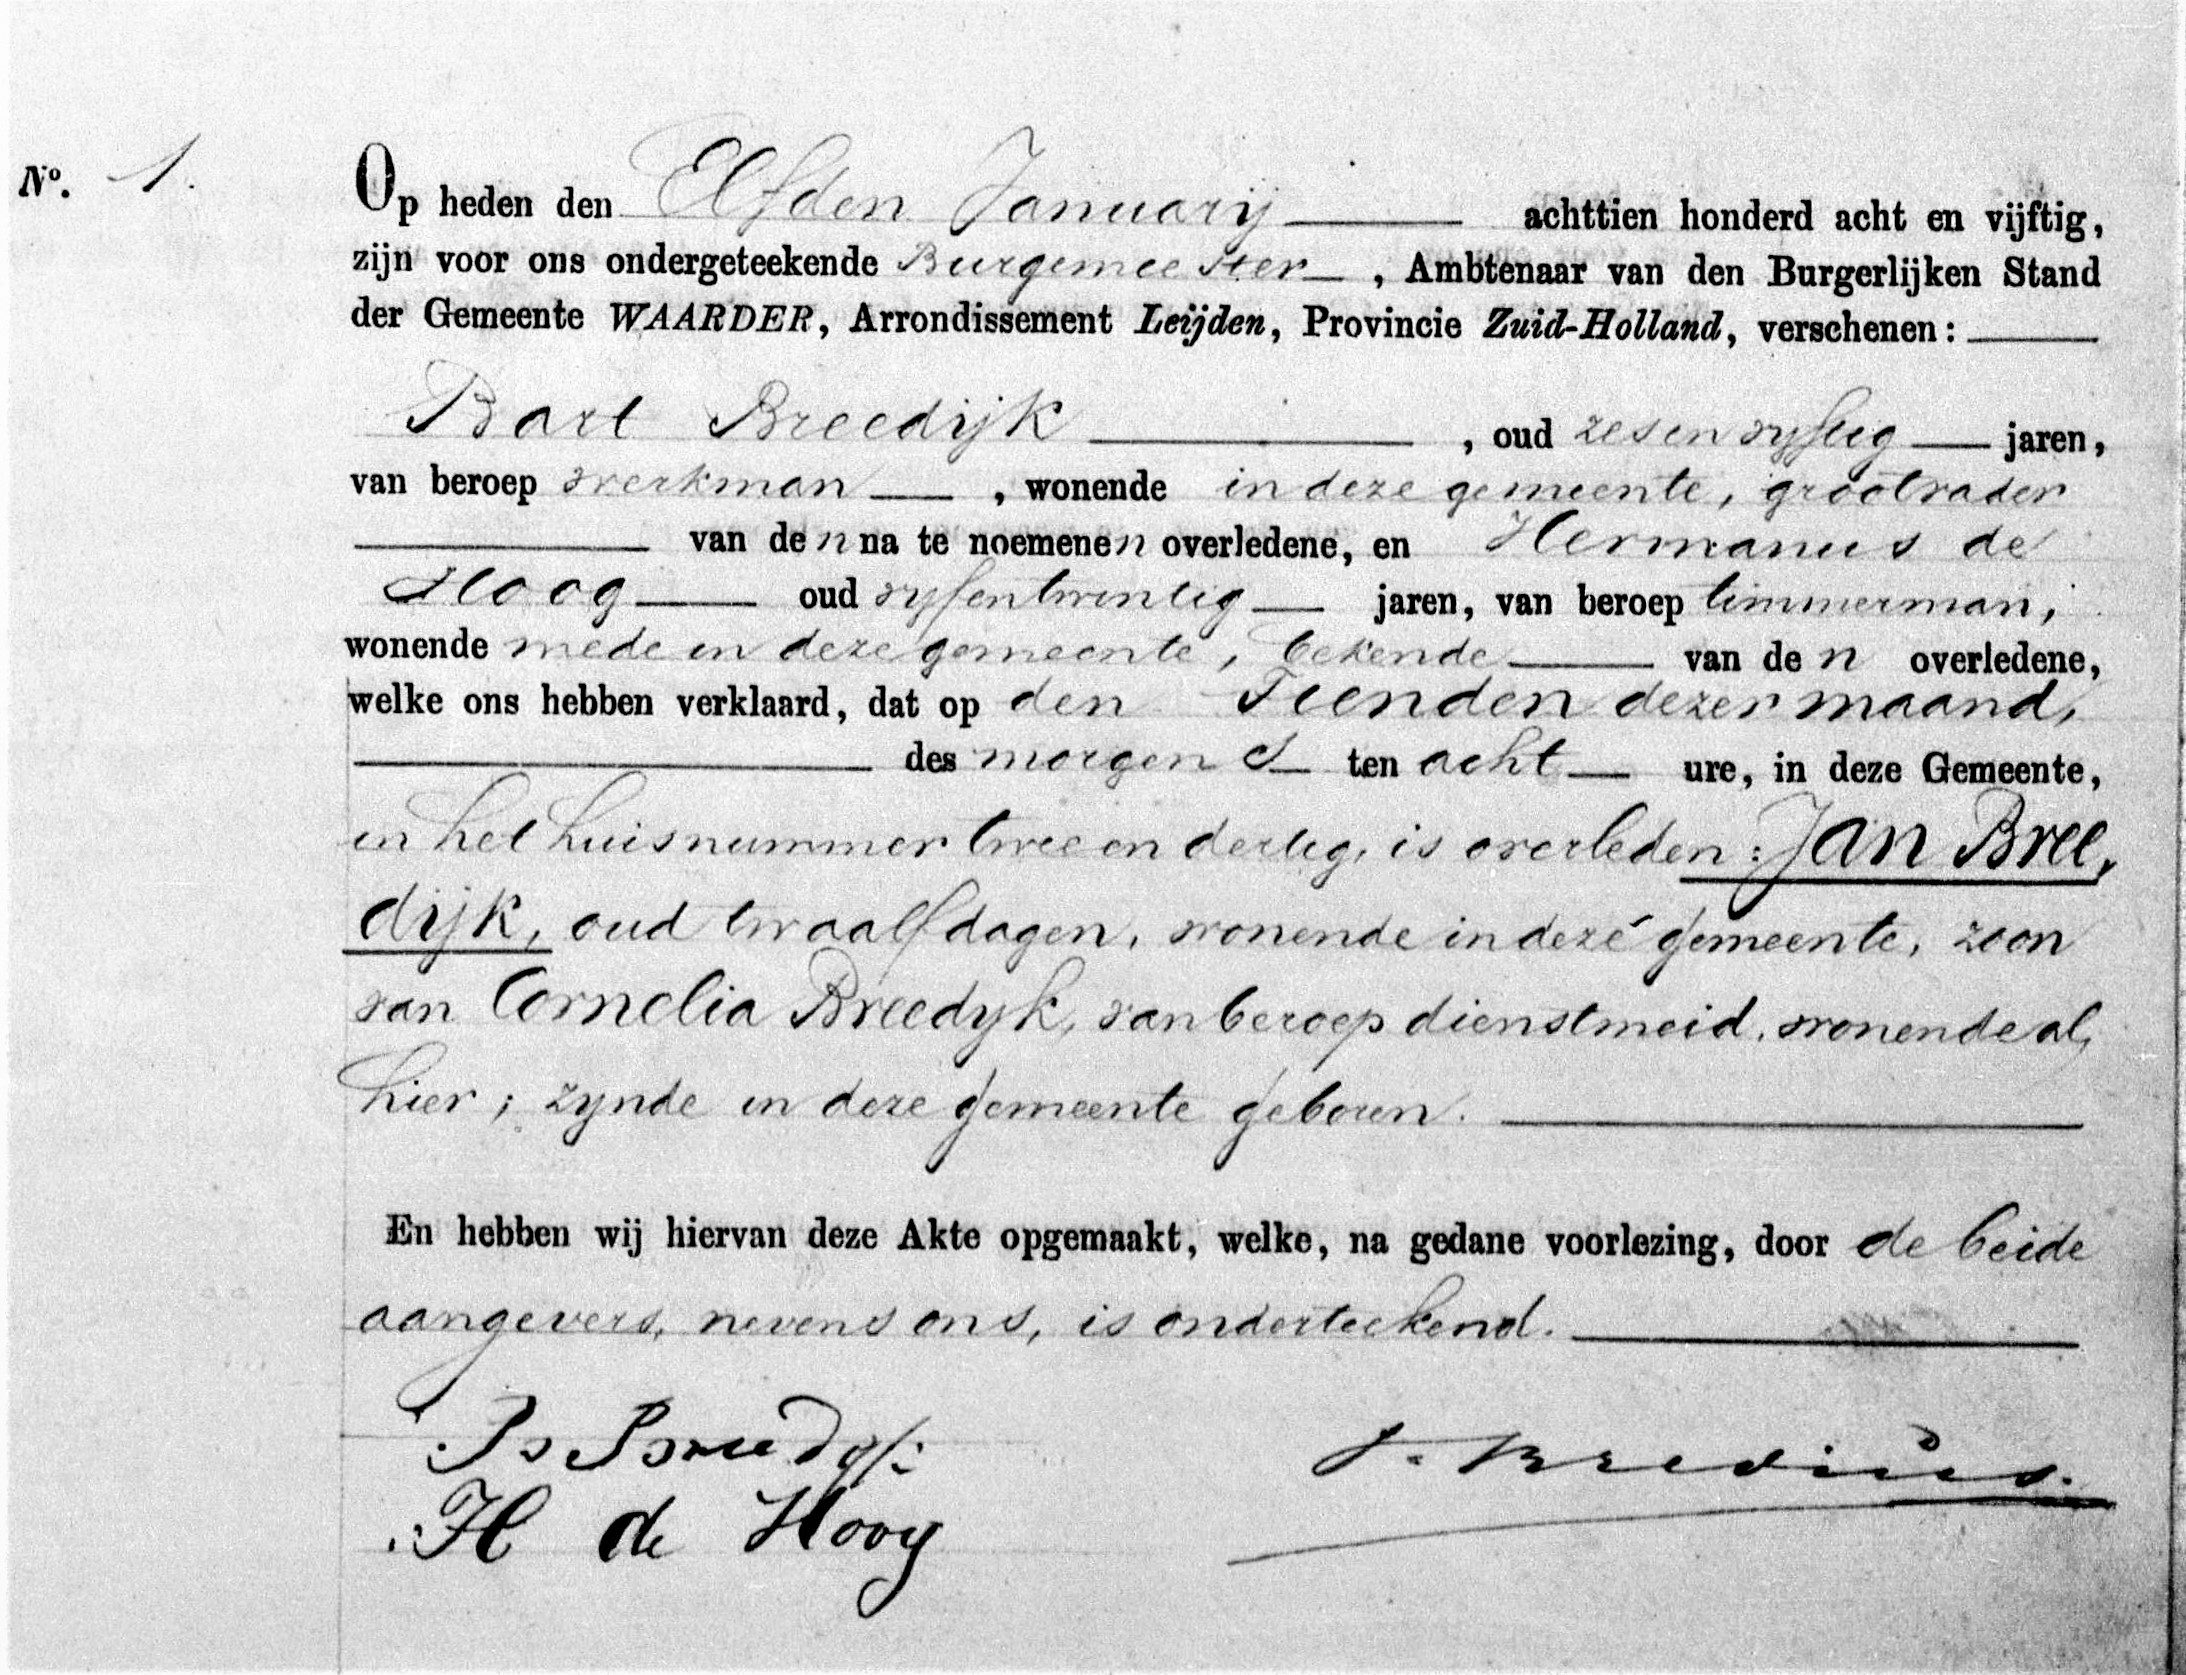 No. 1.
Op heden den Elfden Januarij achttien honderd acht en vijftig,
zijn voor ons ondergeteekende Burgemeester, Ambtenaar van den Burgerlijken Stand
der Gemeente WAARDER, Arrondissement Leijden, Provincie Zuid-Holland, verschenen:
Bart Breedijk, oud zesenvyftig jaren,
van beroep werkman, wonende in deze gemeente, grootvader
van den na te noemenen overledene, en Hermanus de
Hoog oud vyfentwintig jaren, van beroep timmerman,
wonende mede in deze gemeente, bekende van den overledene,
welke ons hebben verklaard, dat op den Tienden dezer maand,
des morgens ten acht ure, in deze Gemeente,
in het huis nummer twee en dertig, is overleden: Jan Bree,
dijk, oud twaalf dagen, wonende in deze gemeente, zoon
van Cornelia Breedyk, van beroep dienstmeid, wonende al,
hier; zynde in deze gemeente geboren.
En hebben wij hiervan deze Akte opgemaakt, welke, na gedane voorlezing, door de beide
aangevers, nevens ons, is onderteekend.
B Breedyk
J. Bredius.
H de Hoog